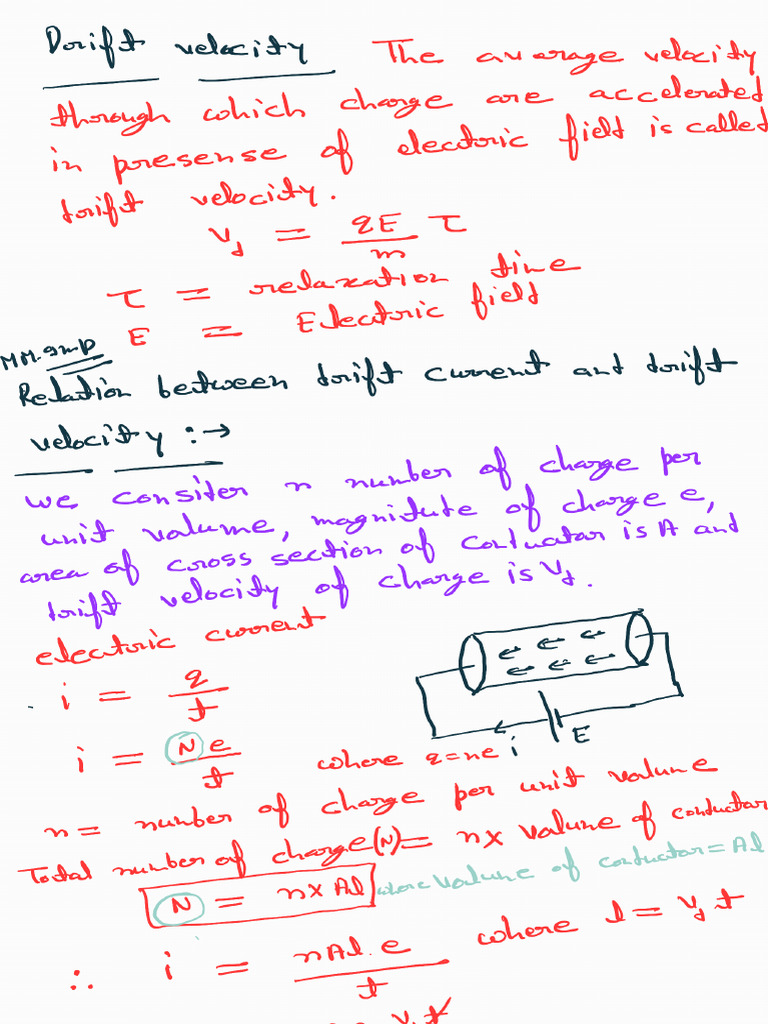 Drift velocity The average velocity
through which charge are accelerated
in presense of electric field is called
drift velocity.
v_d = qE/m τ
τ = relaxation time
E = Electric field
MM.Imp
Relation between drift current and drift
velocity :→
we consider n number of charge per
unit volume, magnitude of charge e,
area of cross section of conductor is A and
drift velocity of charge is v_d.
electric current
i = q/t
i = Ne/t where q=ne
i E
n = number of charge per unit volume
Total number of charge(N) = n× volume of conductor
N = n× Al where volume of conductor = Al
∴ i = nAl.e/t where l = v_d t
v_d t